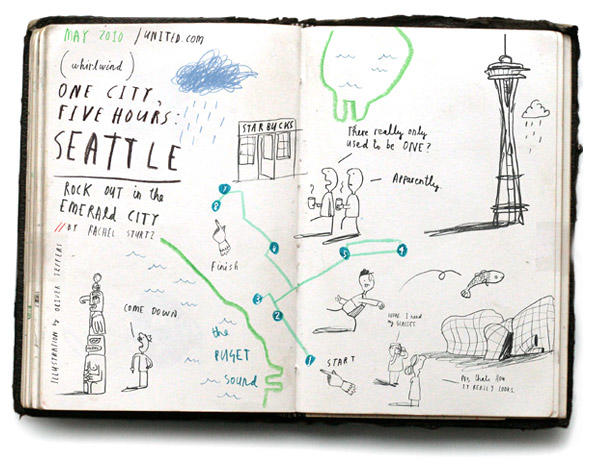 MAY 2010 / UNITED.COM
(whirlwind)
ONE CITY,
FIVE HOURS:
SEATTLE
ROCK OUT in the
EMERALD CITY
// BY RACHEL STURTZ
ILLUSTRATION by OLIVER JEFFERS
STARBUCKS
There really only
used to be ONE?
Apparently.
7
8
Finish
6
5
4
3
2
1
START
COME DOWN
the
PUGET
Sound
I need
my GLASSES
thats how
IT REALLY LOOKS.